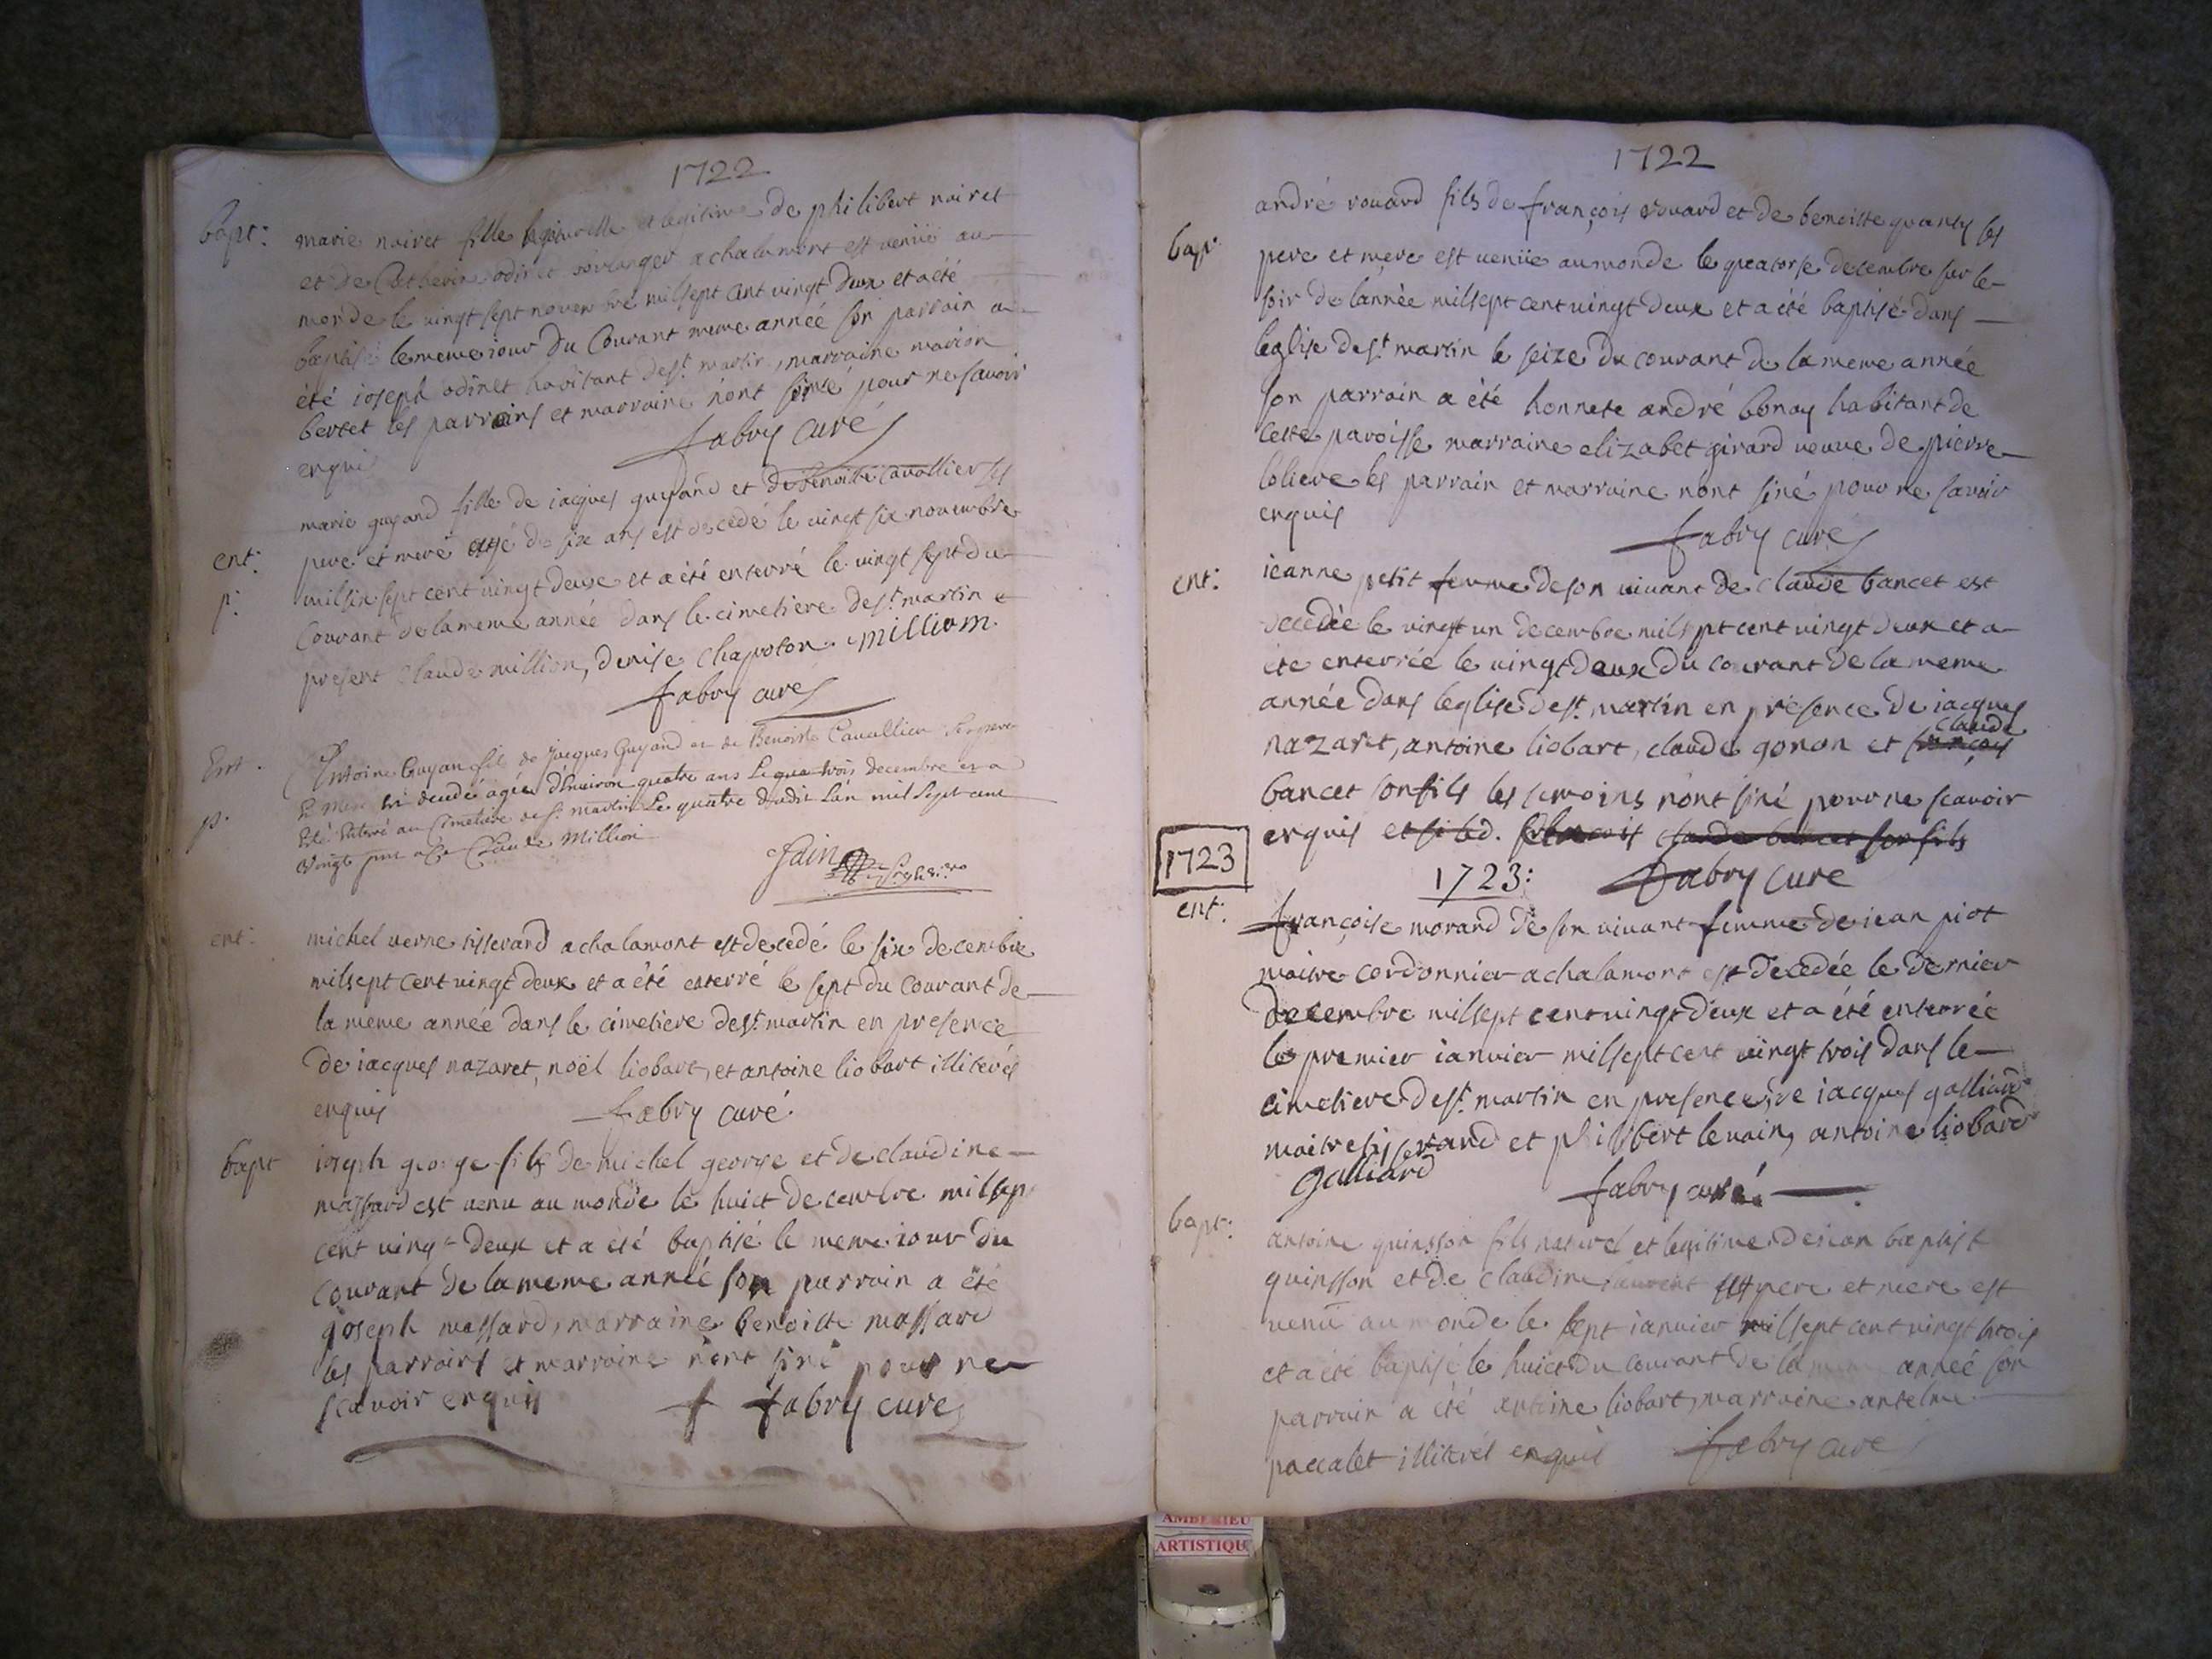 1722
bapt: marie noiret fille naturelle et legitime de philibert noiret
et de Catherine odinet boulanger a chalamont est venüe au
monde le vingt sept novembre milsept cent vingt deux et a été
baptisé le meme iour du Courant meme année son parrain a
été ioseph odinet habitant de st martin, marraine marion
bertet les parrains et marraine n'ont siné pour ne savoir
enquis fabry curé
marie guyand fille de iacques guyand et de benoitte Cavallier ses
ent: pere et mere agé de six ans est decedé le vingt six novembre
p: milsix sept cent vingt deux et a été enterré le vingt sept du
Courant de la meme année dans le cimetiere de st martin e
present claude million, denise chapoton million
fabry curé
Ent. Antoine Guyan fils de Jacques Guyand et de Benoiste Cavallier ses pere
et mere est decedé agée d'environ quatre ans Le qua trois decembre et a
p. Eté Enterré au Cimetiere de st martin Le quatre dudit L'an mil sept cent
vingt Claude Million
Jain
ent: michel verne tisserand a chalamont est decedé le six decembre
milsept cent vingt deux et a été enterré le sept du Courant de
la meme année dans le cimetiere de st martin en presence
de iacques nazaret, noël liobart, et antoine liobart illiterés
enquis fabry curé
bapt ioseph george fils de michel george et de claudine
massard est venu au monde le huict decembre milsept
cent vingt deux et a été baptisé le meme iour du
courant de la meme année son parrain a été
joseph massard, marraine benoitte massard
les parrains et marraine n'ont siné pour ne
scavoir enquis f fabry curé
1722
andré rouard fils de françois rouard et de benoitte quanty ses
bap: pere et mere est venüe au monde le quatorse decembre sur le
soir de l'année milsept cent vingt deux et a été baptisé dans
l'eglise de st martin le seize du courant de la meme année
son parrain a été honnete andré bonay habitant de
cette paroisse marraine elizabet girard veuve de pierre
loliere les parrain et marraine n'ont siné pour ne savoir
enquis
fabry curé
ent: ieanne petit femme de son vivant de claude bancet est
decedèe le vingt un decembre milsept cent vingt deux et a
été enterrée le vingt deux du courant de la meme
année dans l'eglise de st martin en présence de iacques
nazaret, antoine liobart, claude gonon et françois claude
bancet son fils les temoins n'ont siné pour ne scavoir
enquis et si led. françois claude bancet son fils
1723
1723: fabry curé
ent: françoise morand de son vivant femme de iean piot
maitre cordonnier a chalamont est decedée le dernier
decembre milsept cent vingt deux et a été enterrée
le premier ianvier milsept cent vingt trois dans le
cimetiere de st martin en presence de iacques galliard
maitre tisserand et philibert levain, antoine liobard
galliard fabry curé.
bapt: antoine quinsson fils naturel et legitime de iean baptist
quinsson et de claudine laurent ses pere et mere est
venü au monde le sept ianvier milsept cent vingt trois
et a été baptisé le huict du courant de la meme année son
parrain a été antoine liobart, marraine anselme
paccalet illiterés enquis fabry curé
AMBERIEU
ARTISTIQU